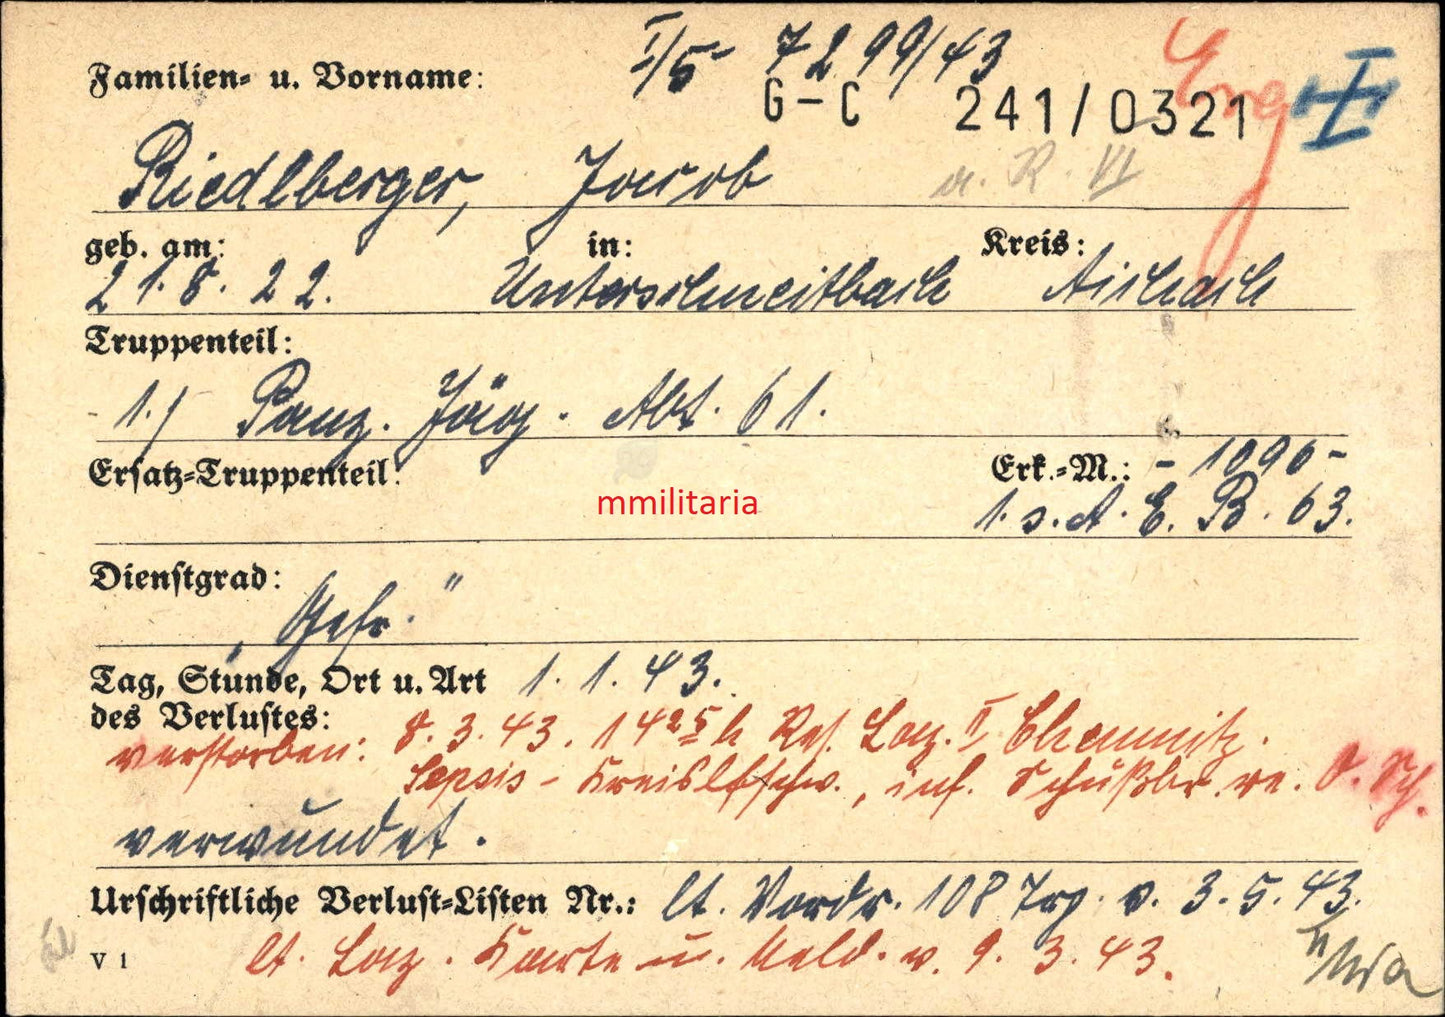 I/5 7299/43
Familien- u. Vorname:
G-C 241/0321
Riedlberger, Jacob
a. R. VI
geb. am: in: Kreis:
21.8.22. Unterschneitbach Aichach
Truppenteil:
1./ Panz. Jäg. Abt. 61.
Ersatz-Truppenteil: Erk.-M.: -1096-
mmilitaria
1. s. A. E. B. 63.
Dienstgrad:
„Gefr."
Tag, Stunde, Ort u. Art 1. 1. 43.
des Verlustes:
verstorben: 8. 3. 43. 14²⁵ h Res. Laz. II Chemnitz.
Sepsis - Kreislfschw., inf. Schußbr. re. O. Sch.
verwundet.
Urschriftliche Verlust-Listen Nr.: lt. Vordr. 108 Trg. v. 3. 5. 43.
V 1 lt. Laz. Karte u. Meld. v. 9. 3. 43.